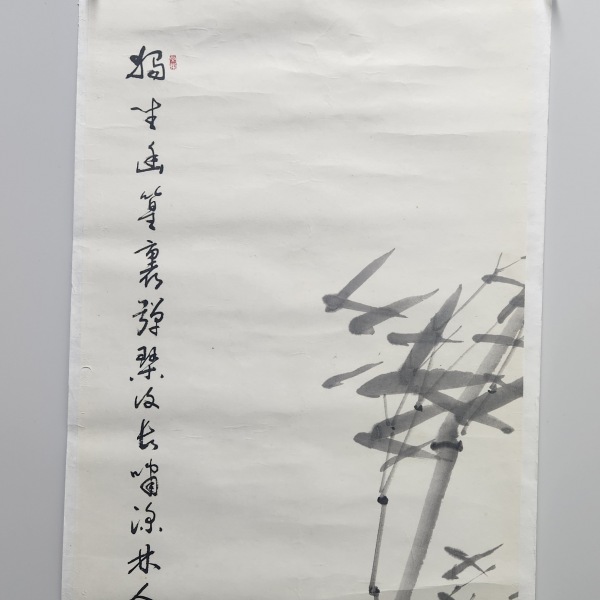 獨坐幽篁裏彈琴復長嘯深林人